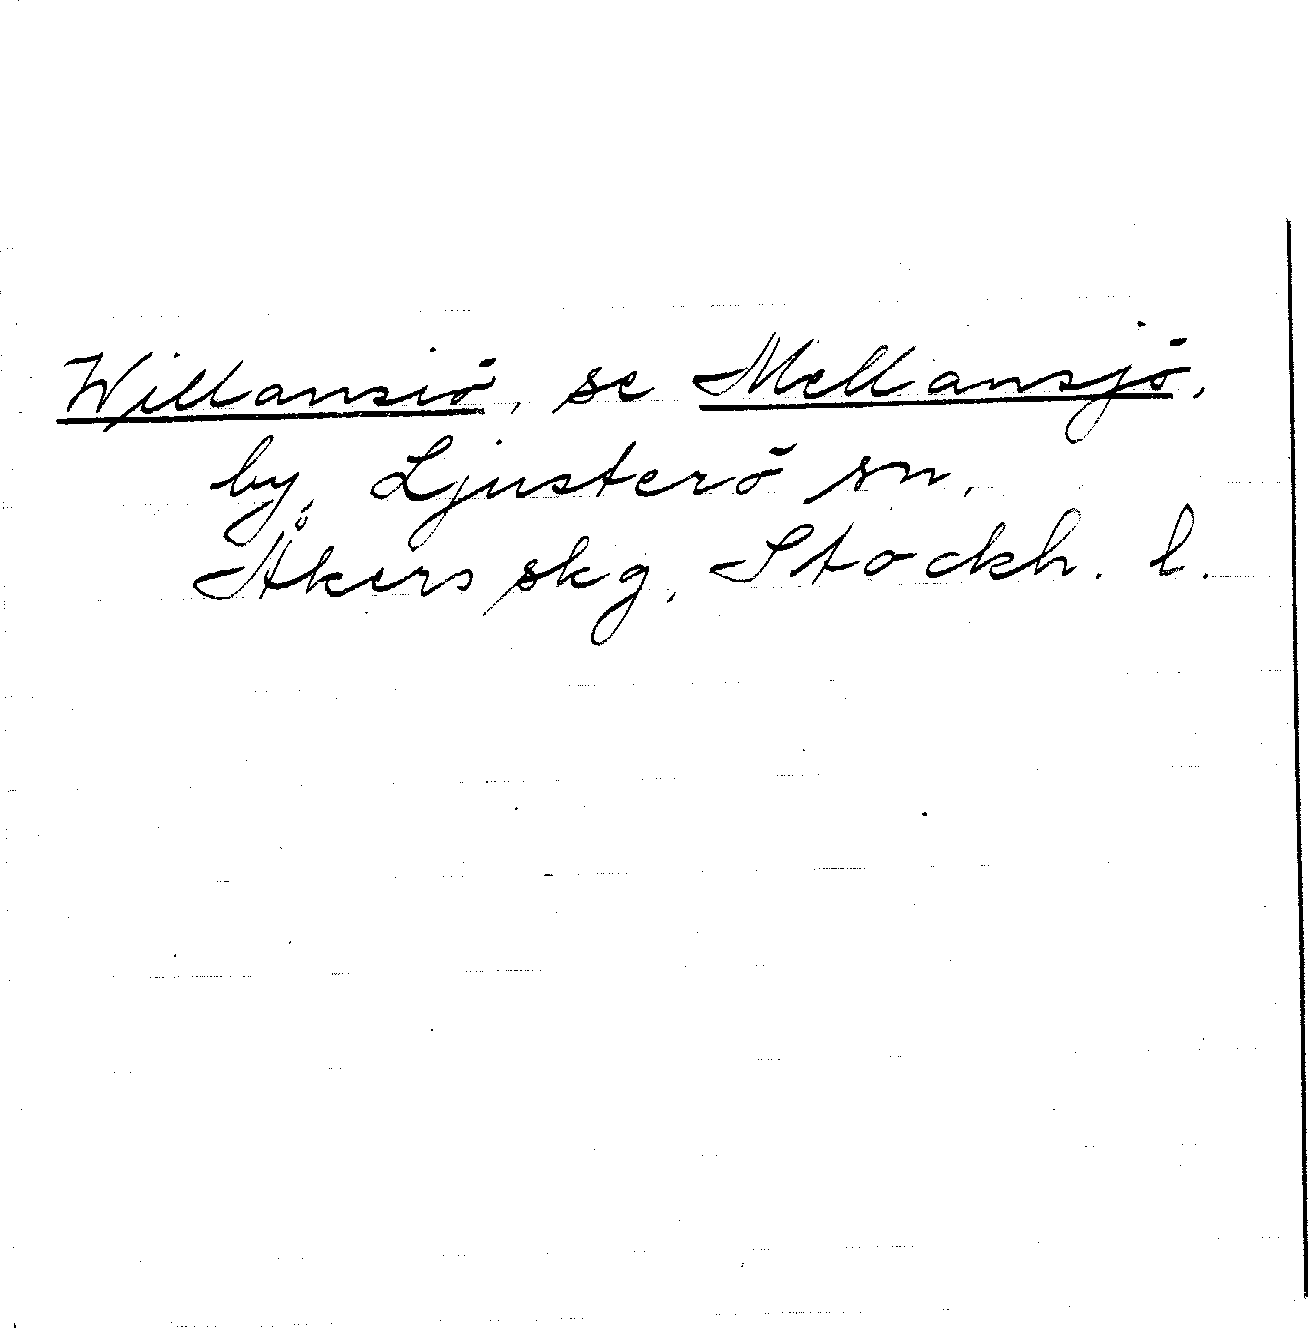 Willansiö, se Mellansjö,
by, Ljusterö sn,
Åkers skg, Stockh. l.